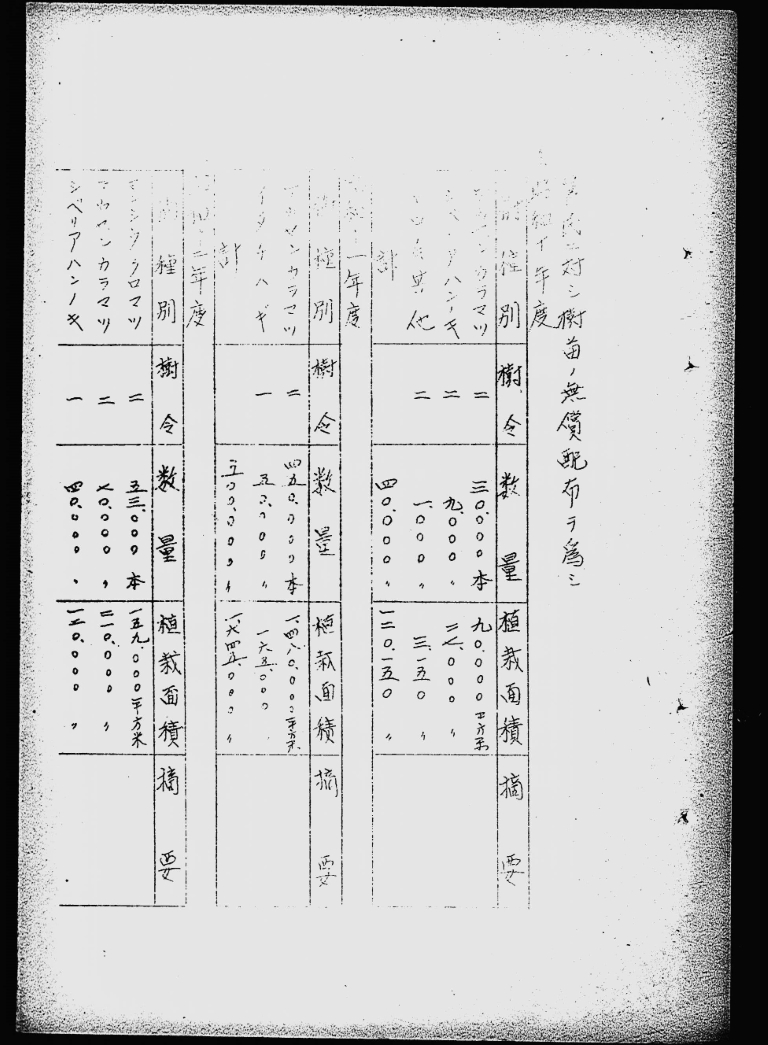 民ニ対シ樹苗ノ無償配布ヲ為シ
昭和十年度
樹種別 樹令 数量 植栽面積 摘要
カラマツ 二 三〇,〇〇〇本 九〇,〇〇〇平方米
ハンノキ 二 九,〇〇〇〃 二七,〇〇〇〃
其他 二 一,〇〇〇〃 三,一五〇〃
計 四〇,〇〇〇〃 一二〇,一五〇〃
十一年度
樹種別 樹令 数量 植栽面積 摘要
マンカラマツ 二 四五〇,〇〇〇本 平方米
イタチハギ 一 五〇,〇〇〇〃 一六五,〇〇〇
計 五〇〇,〇〇〇〃 一,七四五,〇〇〇〃
十二年度
樹種別 樹令 数量 植栽面積 摘要
クロマツ 二 五三,〇〇〇本 一五九,〇〇〇平方米
カラマツ 二 七〇,〇〇〇〃 二一〇,〇〇〇〃
シベリアハンノキ 一 四〇,〇〇〇〃 一二〇,〇〇〇〃